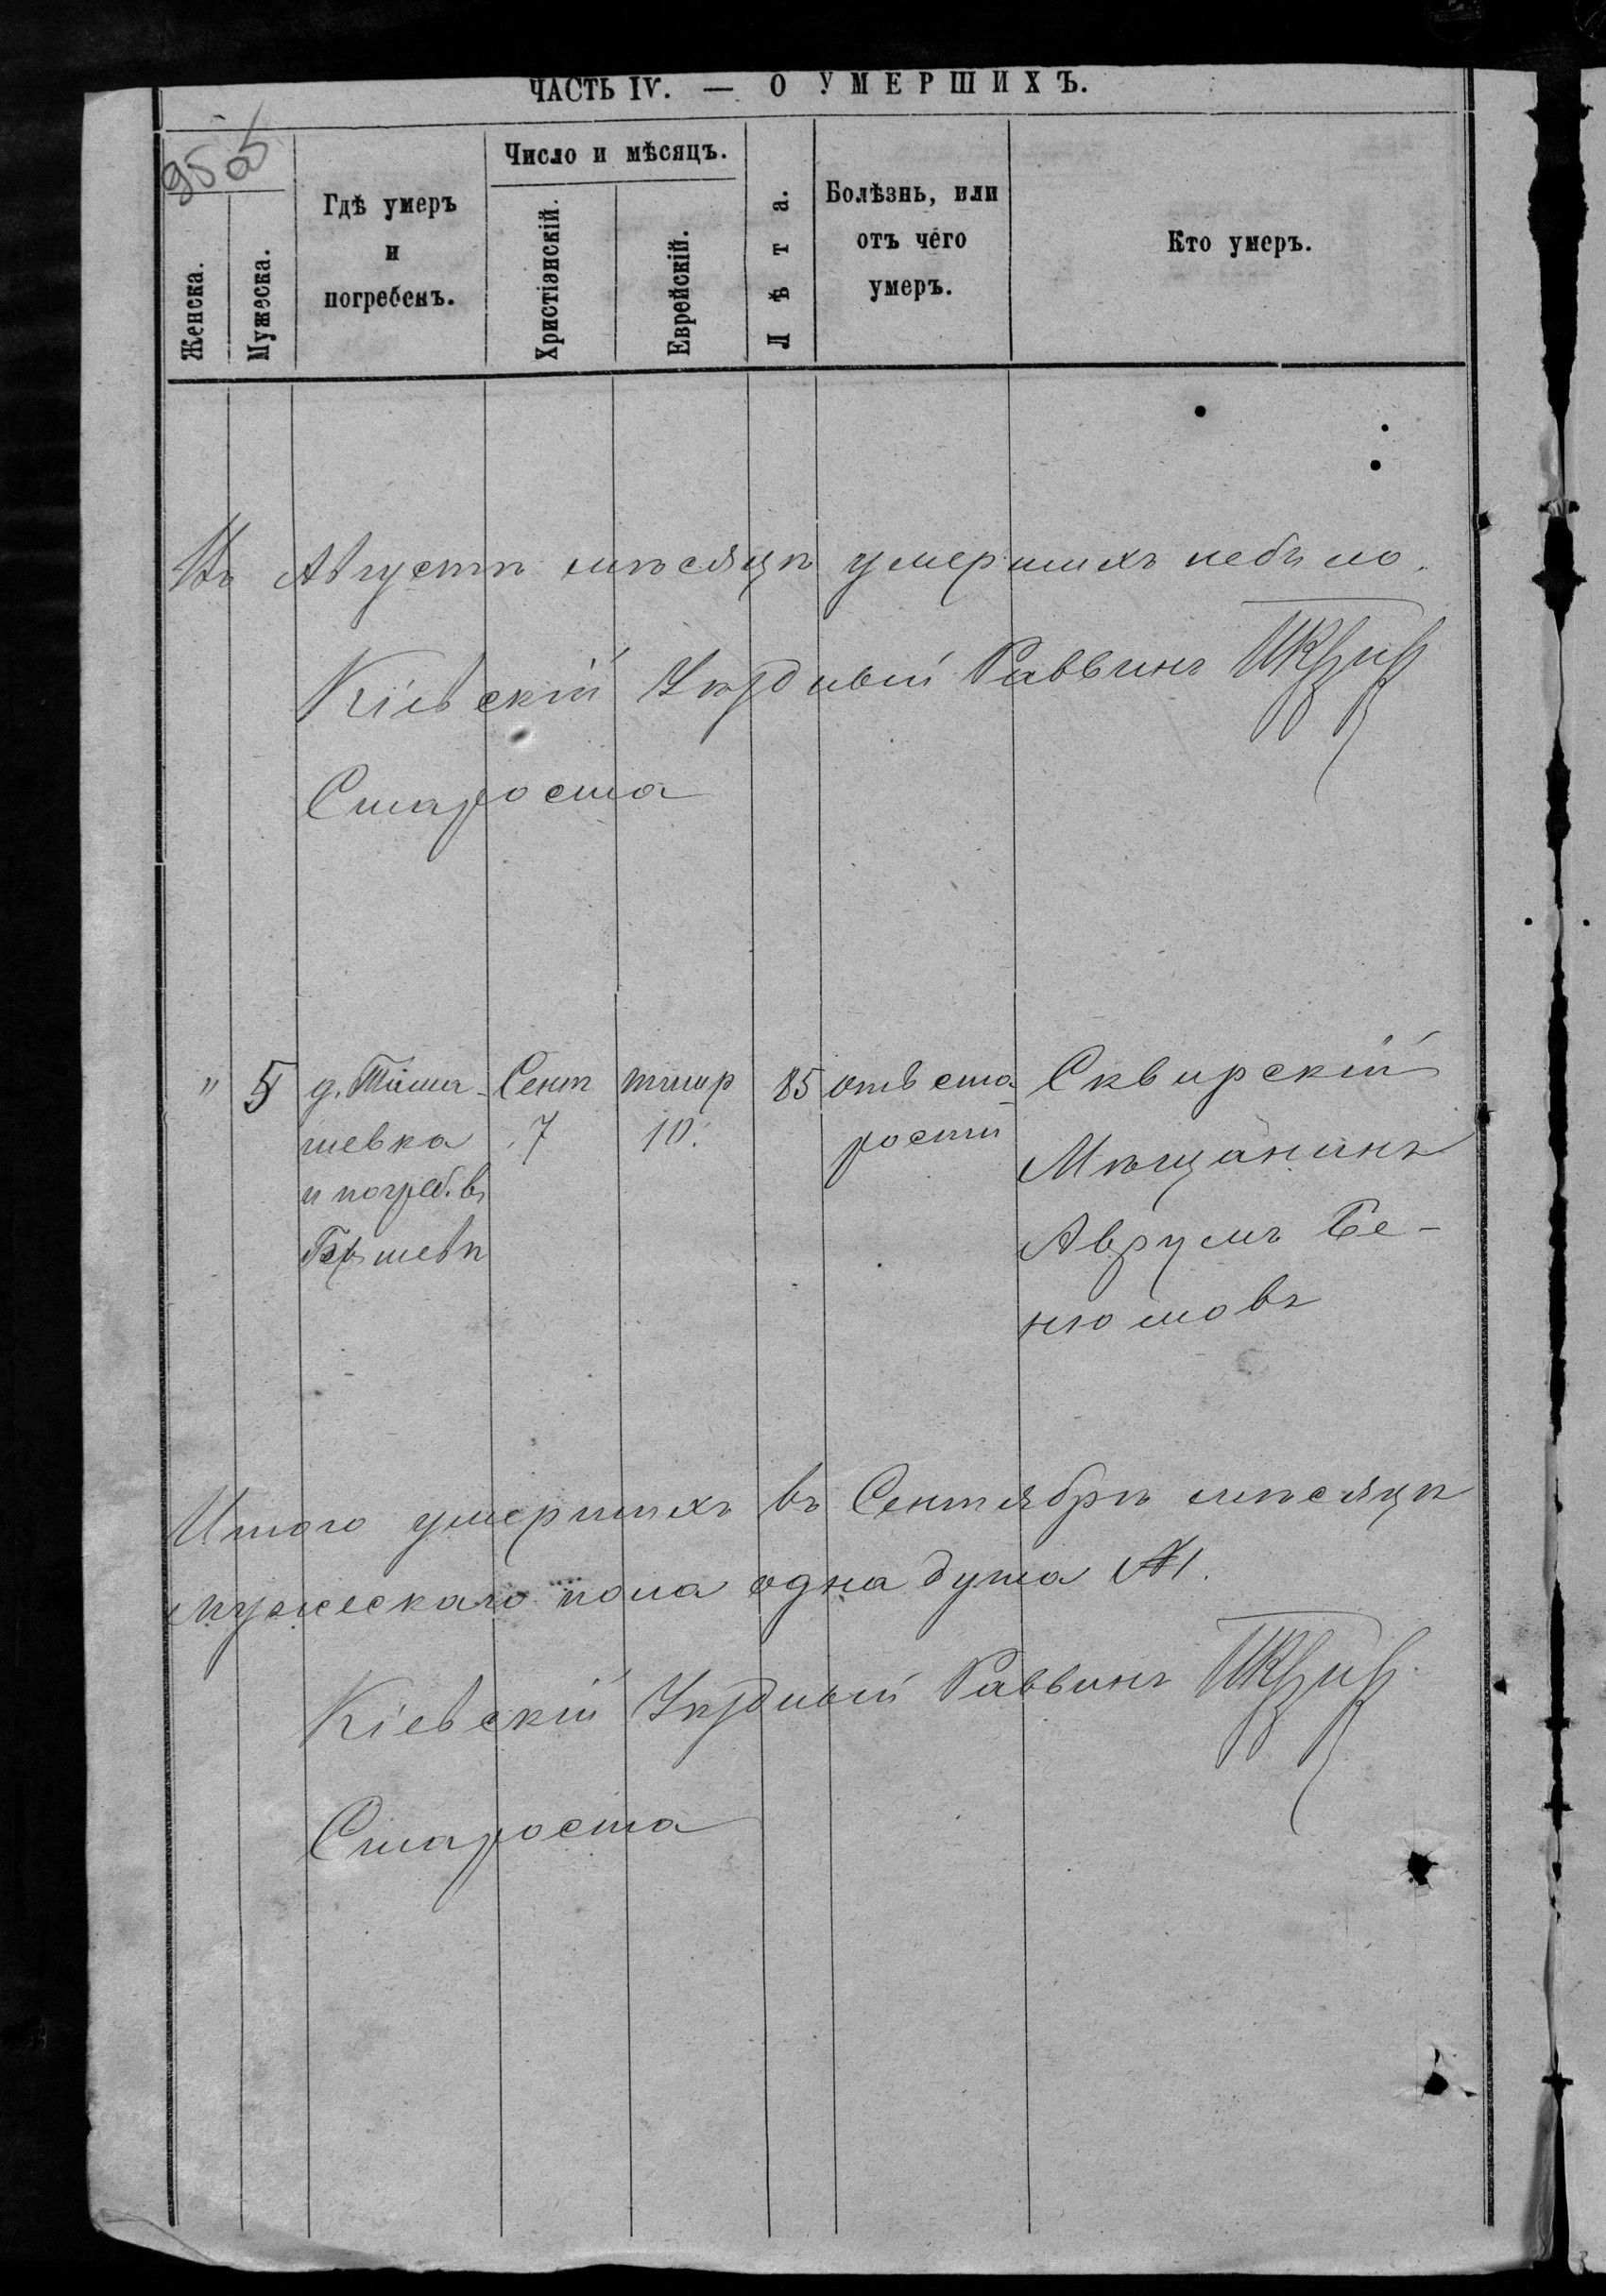 ЧАСТЬ IV. — О УМЕРШИХЪ.
95 об
Женска.
Мужеска.
Гдѣ умеръ
и
погребенъ.
Число и мѣсяцъ.
Христіанскій.
Еврейскій.
Лѣта.
Болѣзнь, или
отъ чего
умеръ.
Кто умеръ.
Въ Августѣ мѣсяцѣ умершихъ небыло.
Кіевскій Уѣздный Раввинъ
Староста
" 5 д. Таша- Сент тишр 85 отъ ста- Сквирскій
шевка 7 10. рости Мѣщанинъ
и погреб. въ Аврумъ Бе-
нюмовъ
Итого умершихъ въ Сентябрѣ мѣсяцѣ
мужескаго пола одна душа №1.
Кіевскій Уѣздный Раввинъ
Староста